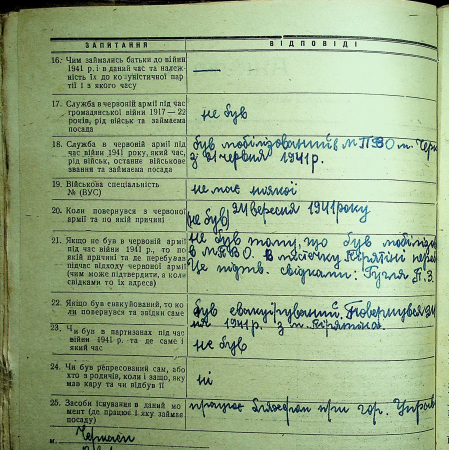 ЗАПИТАННЯ ВІДПОВІДІ
16. Чим займались батьки до війни
1941 р. і в даний час та належ-
ність їх до комуністичної пар-
тії і з якого часу
17. Служба в червоній армії під час
громадянської війни 1917—22
років, рід військ та займаєма
посада
не був
18. Служба в червоній армії під
час війни 1941 року, який час,
рід військ, останнє військове
звання та займаєма посада
був мобілізований в МПВО м. Черк
з 21 червня 1941 р.
19. Військова спеціальність
№ (ВУС)
не має ніякої
20. Коли повернувся з червоної
армії та по якій причині
(не був) вересня 1941 року
21. Якщо не був в червоній армії
під час війни 1941 р., то по
якій причині та де перебував
підчас відходу червоної армії
(чим може підтвердити, а коли
свідками то їх адреса)
не був тому, що був мобілізо
в МПВО. В
Це підтв. свідками:
22. Якщо був евакуйований, то ко-
ли повернувся та звідки саме
був евакуйований. Повернувся
1941 р. з м. Пирятина
23. Чи був в партизанах під час
війни 1941 р. та де саме і
який час
не був
24. Чи був репресований сам, або
хто з родичів, коли і защо, яку
мав кару та чи відбув її
ні
25. Засоби існування в даний мо-
мент (де працює і яку займає
посаду)
працює при гор. Управ
м. Черкаси